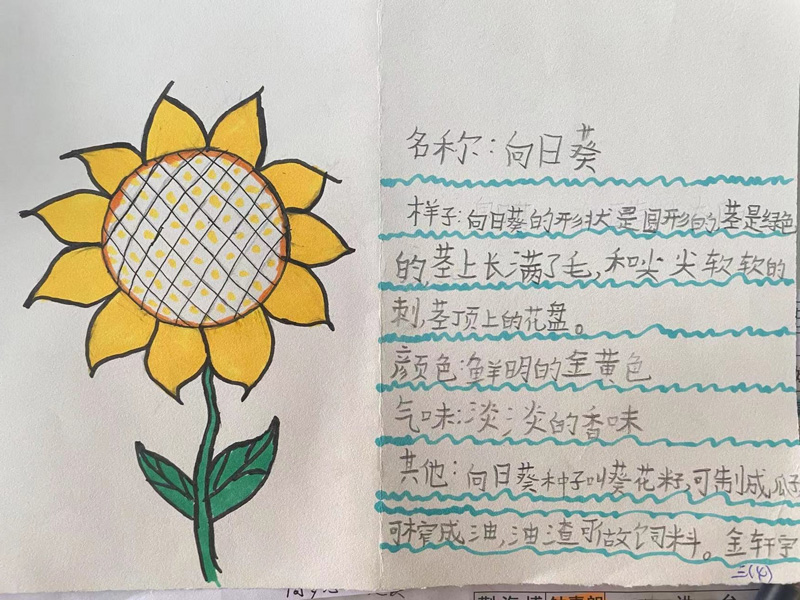 名称：向日葵
样子：向日葵的形状是圆形的茎是绿色
的，茎上长满了毛，和尖尖软软的
刺，茎顶上的花盘。
颜色：鲜明的金黄色
气味：淡淡的香味
其他：向日葵种子叫葵花籽，可制成瓜子
可榨成油，油渣可做饲料。金轩宇